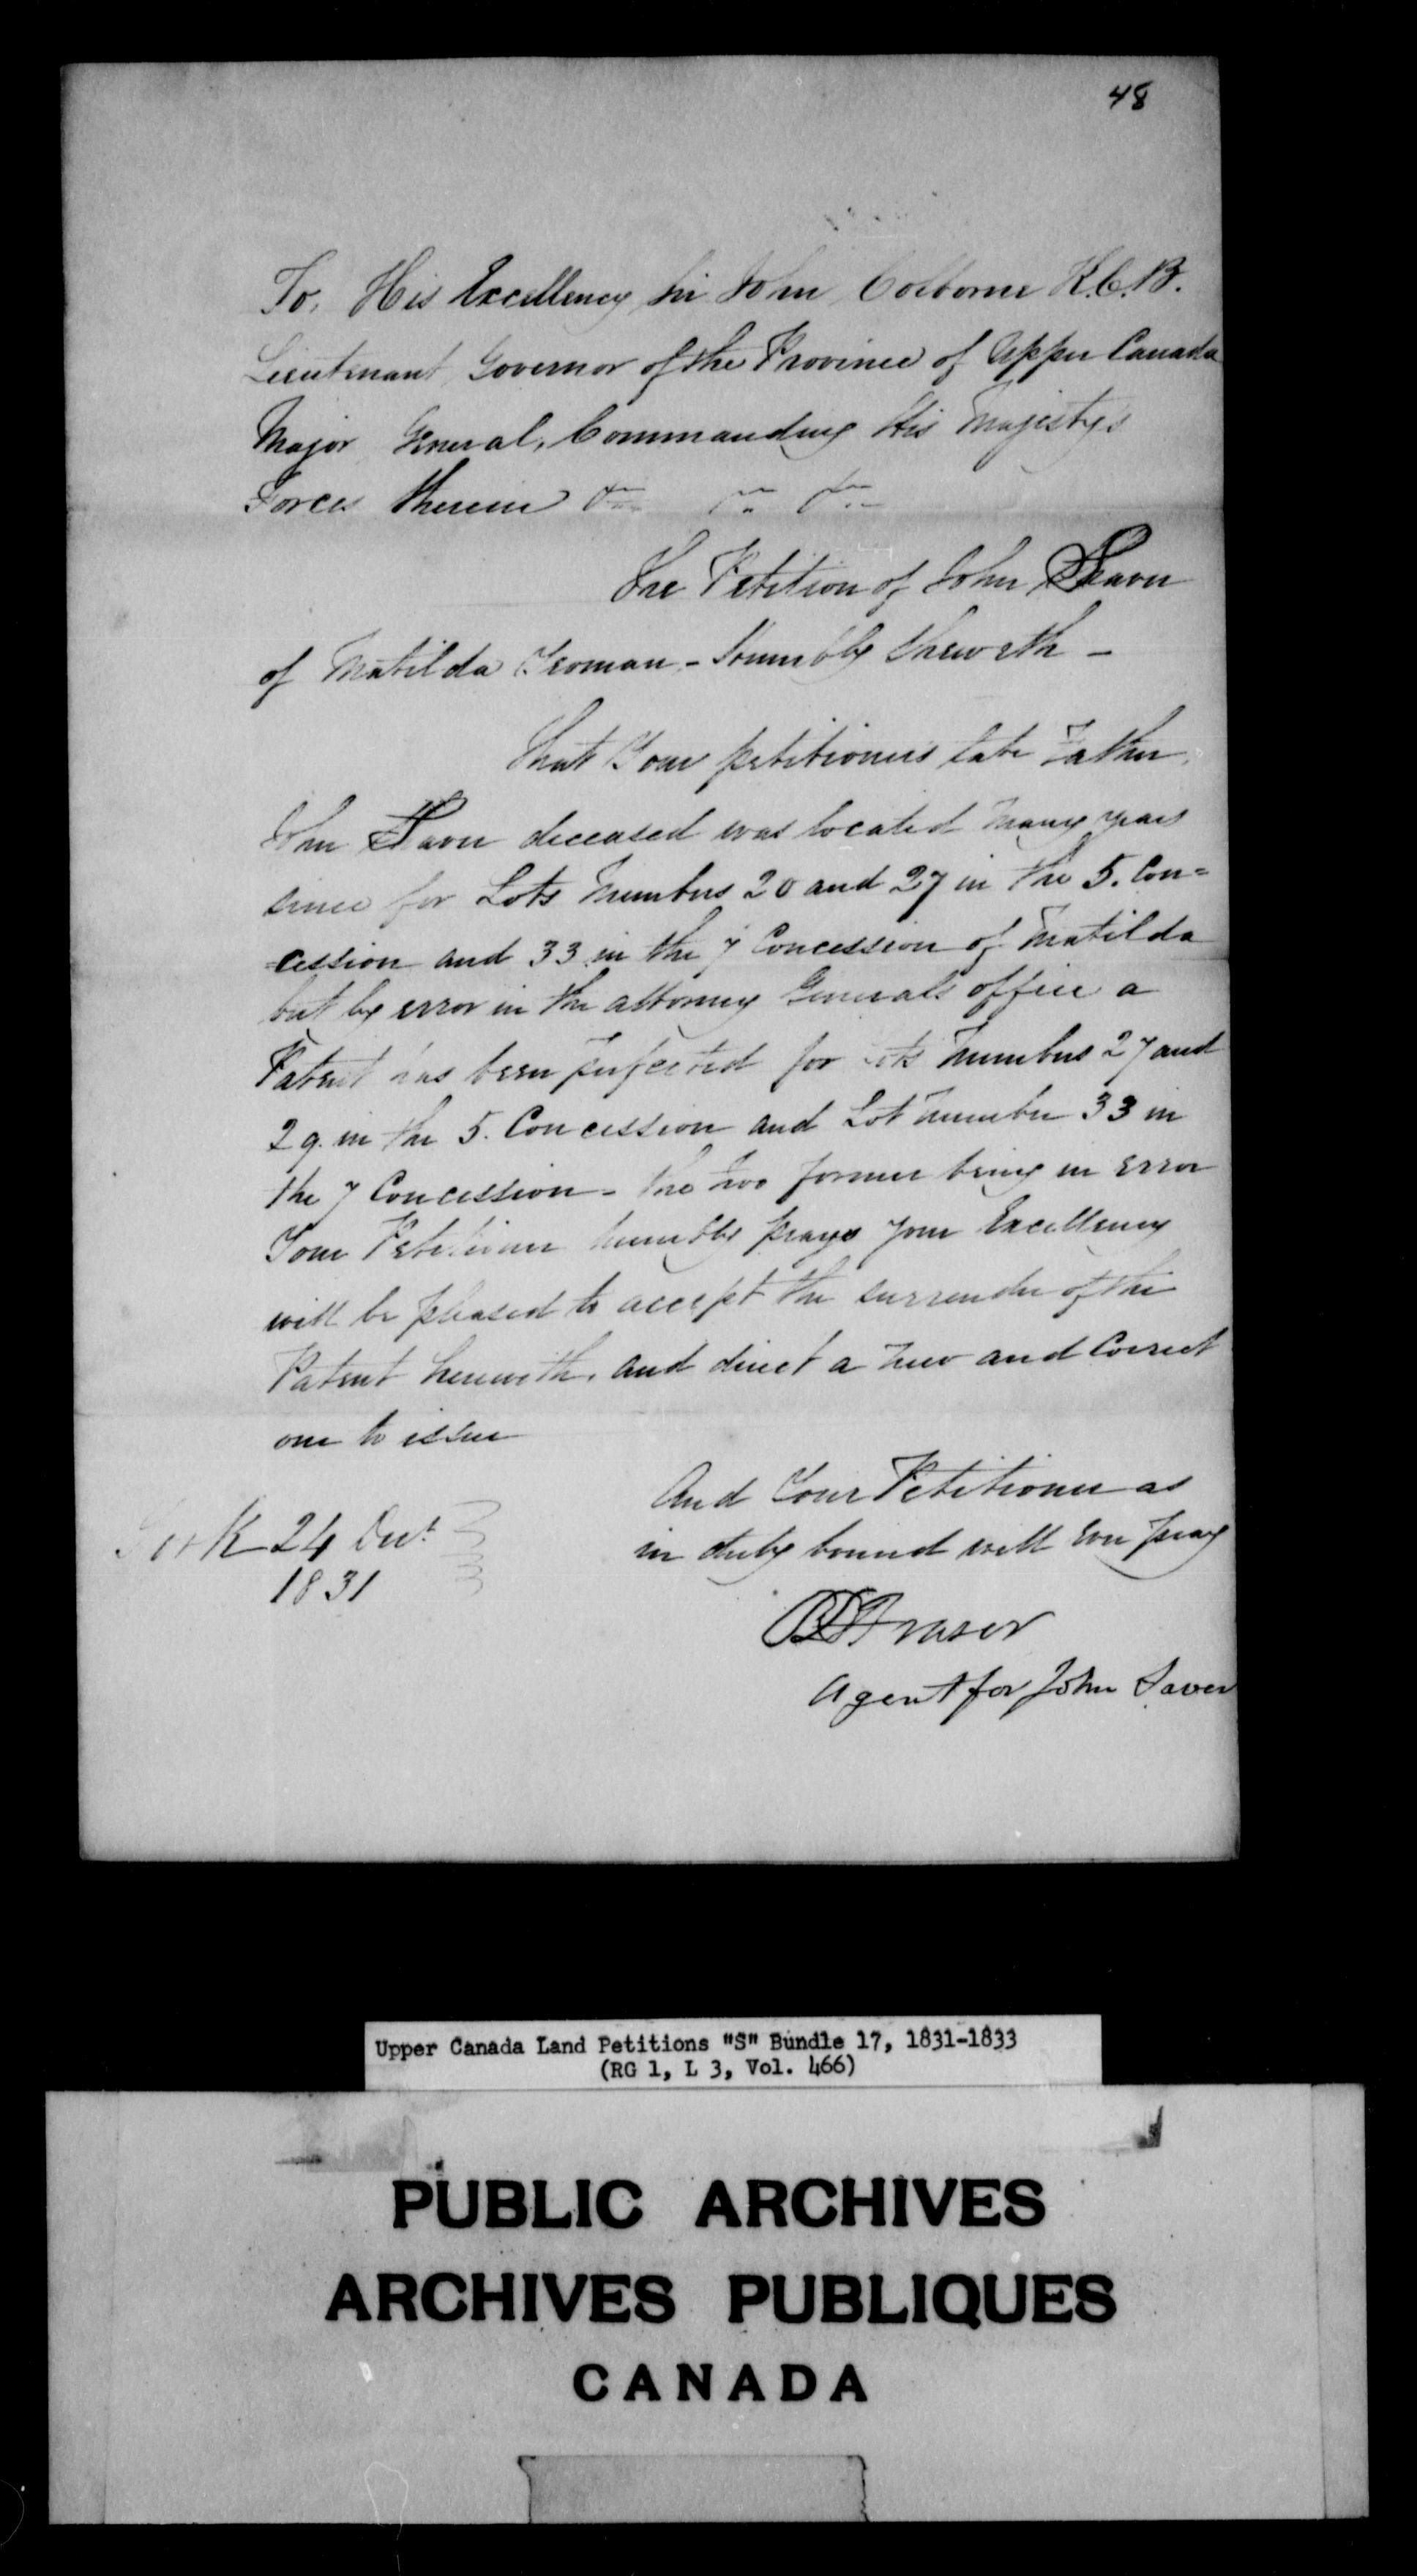 48
To, His Excellency Sir John Colborne K.C.B.
Lieutenant Governor of the Province of Upper Canada
Major General, Commanding His Majestys
Forces therein
The Petition of John Saver
of Matilda Yeoman - Humbly Sheweth -
That Your petitioners late Father,
John Saver deceased was located many years
since for Lots Numbers 20 and 27 in the 5. Con=
=cession and 33 in the 7 Concession of Matilda
but by error in the attorney Generals office a
Patent has been perfected for Lots Numbers 27 and
29. in the 5. Concession and Lot Number 33 in
the 7 Concession - the two former being in error
Your Petitioner humbly prays your Excellency
will be pleased to accept the surrender of the
Patent herewith, and direct a new and Correct
one to issue
And Your Petitioner as
in duty bound will ever pray
York 24 Decr
1831
Fraser
Agent for John Saver
Upper Canada Land Petitions "S" Bundle 17, 1831-1833
(RG 1, L 3, Vol. 466)
PUBLIC ARCHIVES
ARCHIVES PUBLIQUES
CANADA